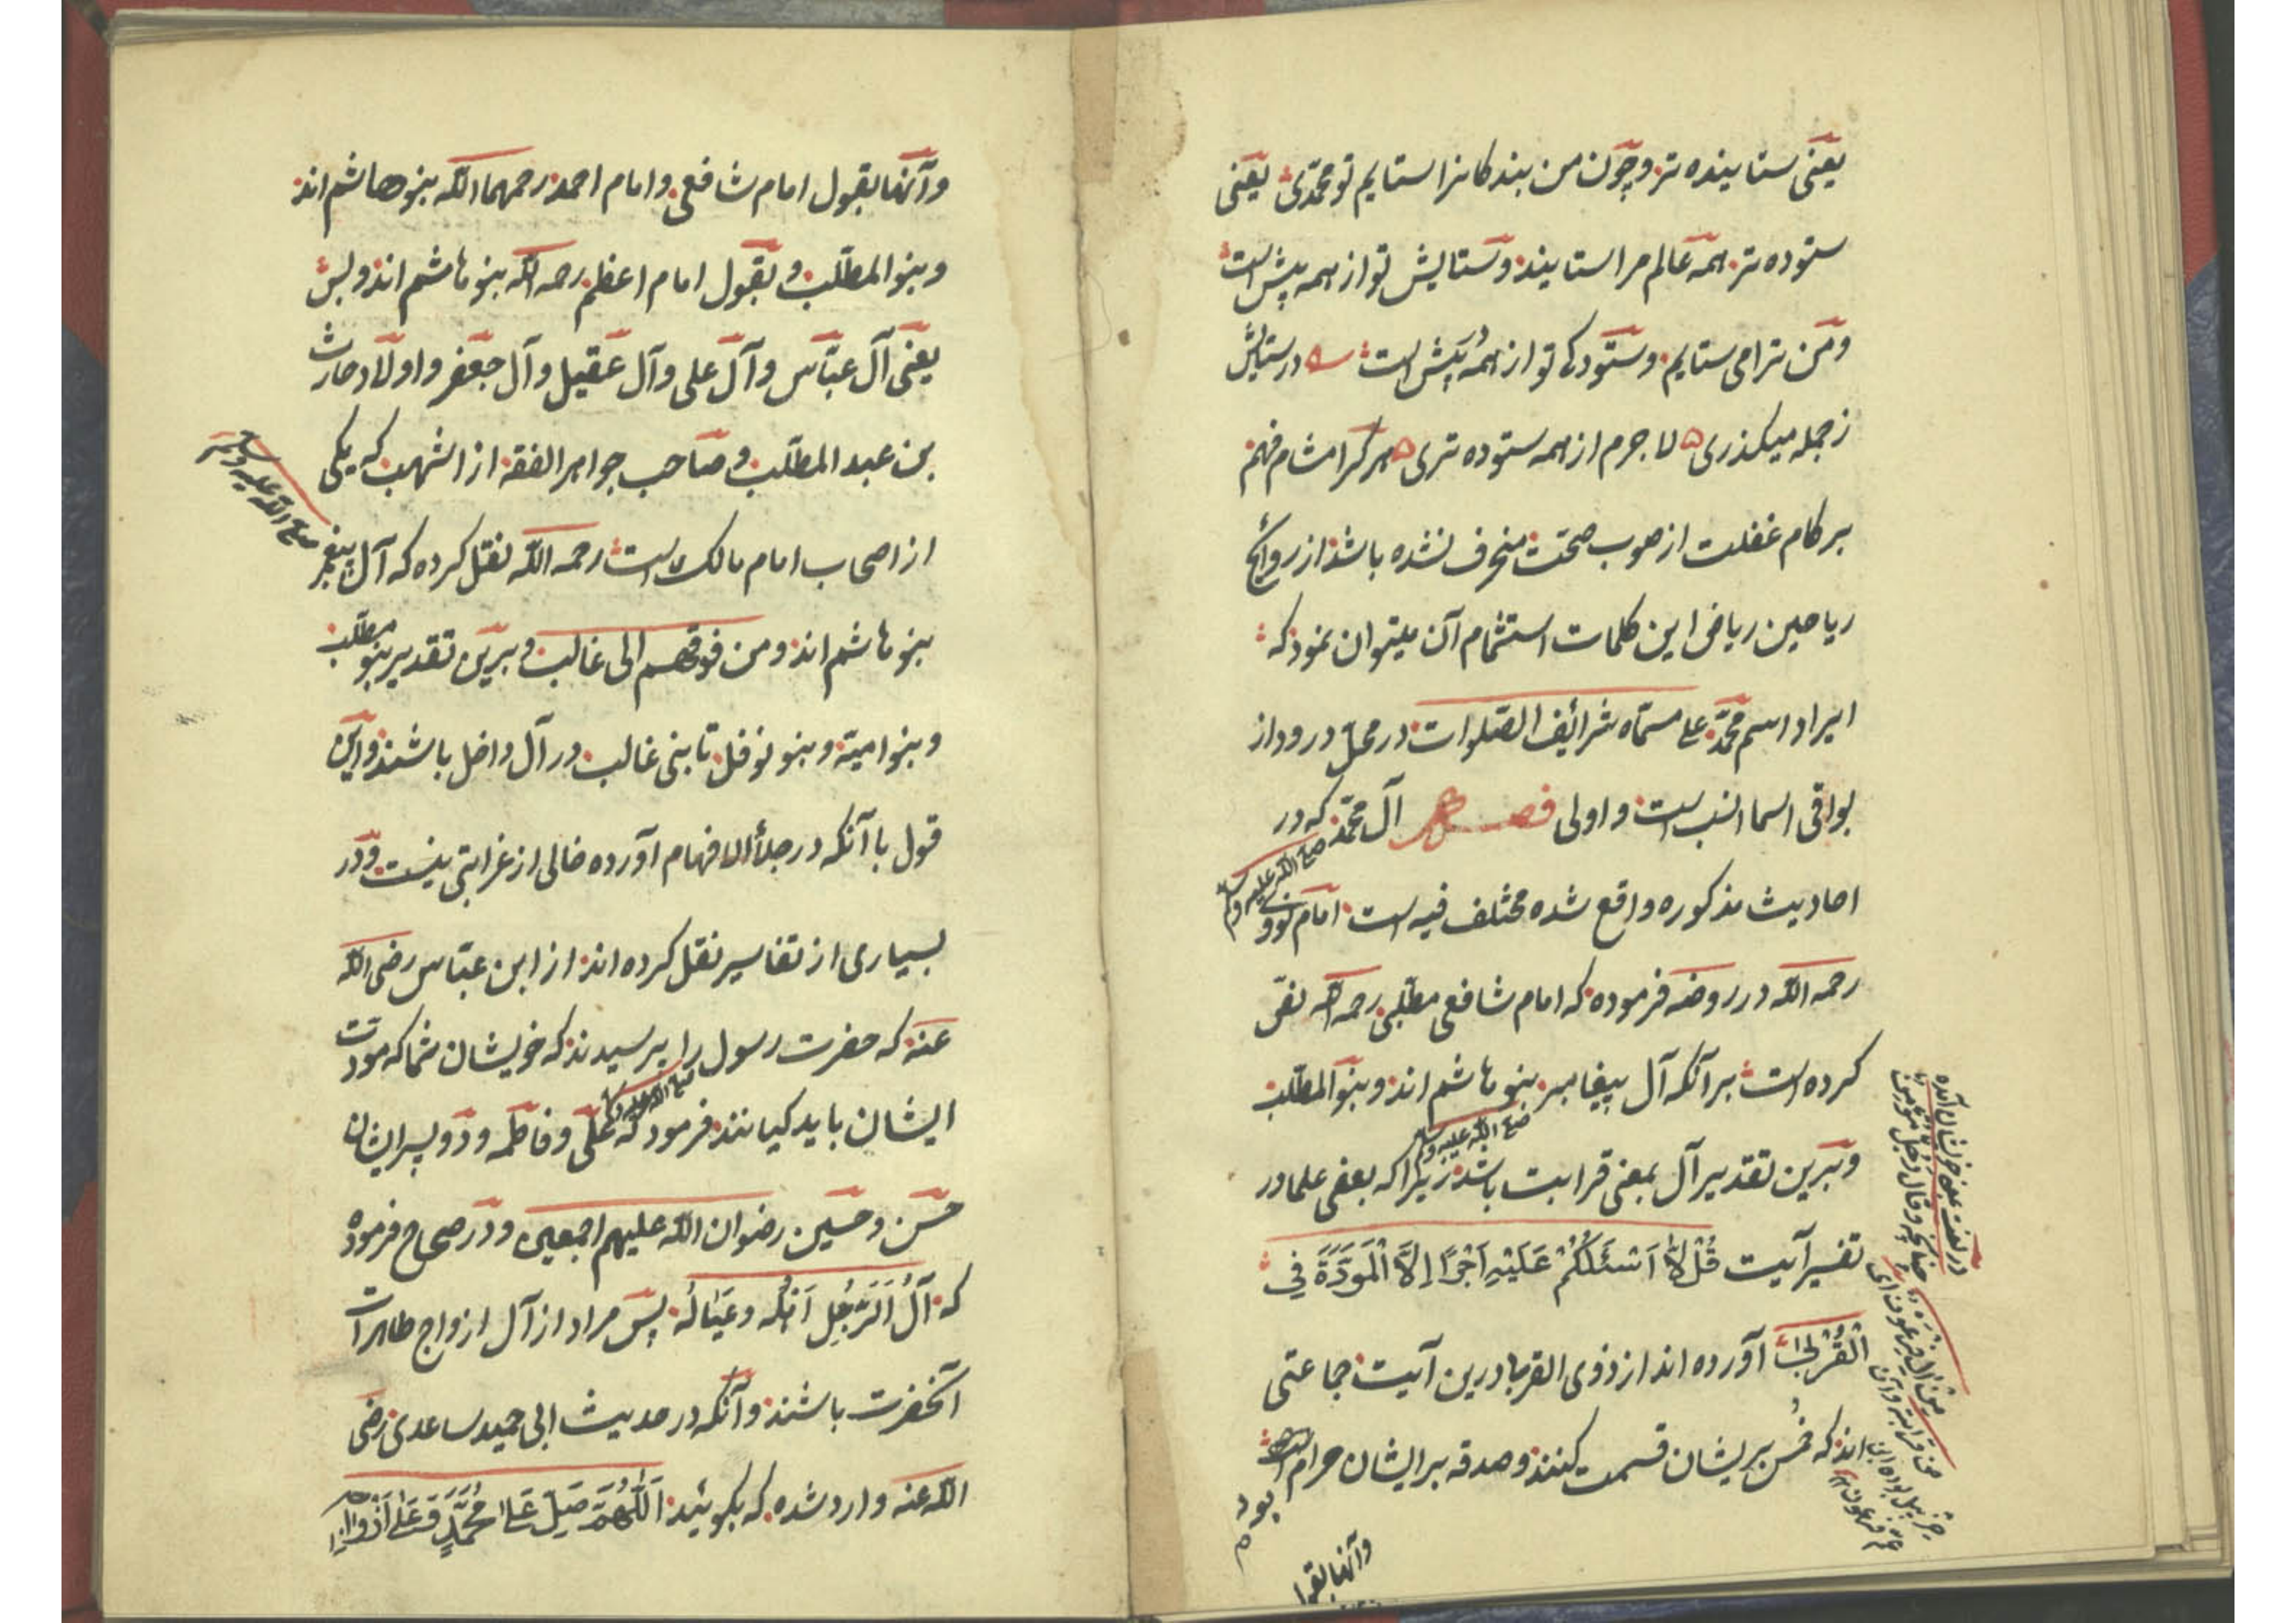 یعنی ستاینده تر و چون من بندکانرا ستایم تو محمدی یعنی
ستوده تر همه عالم مرا ستایند و ستایش تو از همه بیش است
و من ترا می ستایم و ستودکی تو از همه بیش است در ستایش
ز جمله میکذری لا جرم از همه ستوده تری هر کرا مشام فهم
بر کام غفلت از صوب صحت منحرف نشده باشد از روائح
ریاحین ریاض این کلمات استشمام آن میتوان نمود که
ایراد اسم محمد علی مسماه شرائف الصلوات در محل درود از
بواقی اسما انسب است و اولی فصل آل محمد که در
صلی الله علیه وسلم
احادیث مذکوره واقع شده مختلف فیه است امام نووی
رحمه الله در روضه فرموده که امام شافعی مطلبی رحمه الله نص
کرده است بر آنکه آل پیغامبر بنو هاشم اند و بنو المطلب
صلی الله علیه وسلم
و برین تقدیر آل بمعنی قرابت باشد زیرا که بعضی علما در
تفسیر آیت قُلْ لَا اَسْئَلُكُمْ عَلَيْهِ اَجْرًا اِلَّا الْمَوَدَّةَ فِي
الْقُرْبٰی آورده اند از ذوی القربا درین آیت جماعتی
اند که خمس بریشان قسمت کنند و صدقه بر ایشان حرام است
در لغت بمعنی خویشان آمده
چنانچه و قال رجل مؤمن
من آل فرعون ای
من قرابته و آن
حزقیل بود ابن
عم فرعون
و آنها بقول
و آنها بقول امام شافعی و امام احمد رحمهما الله بنو هاشم اند
و بنو المطلب و بقول امام اعظم رحمه الله بنو هاشم اند و بس
یعنی آل عباس و آل علی و آل عقیل و آل جعفر و اولاد حارث
بن عبد المطلب و صاحب جواهر الفقه از اشهب که یکی
از اصحاب امام مالک است رحمه الله نقل کرده که آل پیغمبر
صلی الله علیه وسلم
بنو هاشم اند و من فوقهم الی غالب و برین تقدیر بنو مطلب
و بنو امیة و بنو نوفل تا بنی غالب در آل داخل باشند و این
قول با آنکه در جلأ الافهام آورده خالی از غرابتی نیست و در
بسیاری از تفاسیر نقل کرده اند از ابن عباس رضی الله
عنه که حضرت رسول را پرسیدند که خویشان شما که مودت
صلی الله علیه وسلم
ایشان باید کیانند فرمود که علی و فاطمه و دو پسر ایشان
حسن و حسین رضوان الله علیهم اجمعین و در صحاح فرموده
که آلُ الرَّجُلِ اَهْلُهُ وَعِیَالُهُ پس مراد از آل ازواج طاهرات
آنحضرت باشند و آنکه در حدیث ابی حمید ساعدی رضی
الله عنه وارد شده که بکویید اَللّٰهُمَّ صَلِّ عَلٰی مُحَمَّدٍ وَعَلٰی اَزْوَاجِهِ